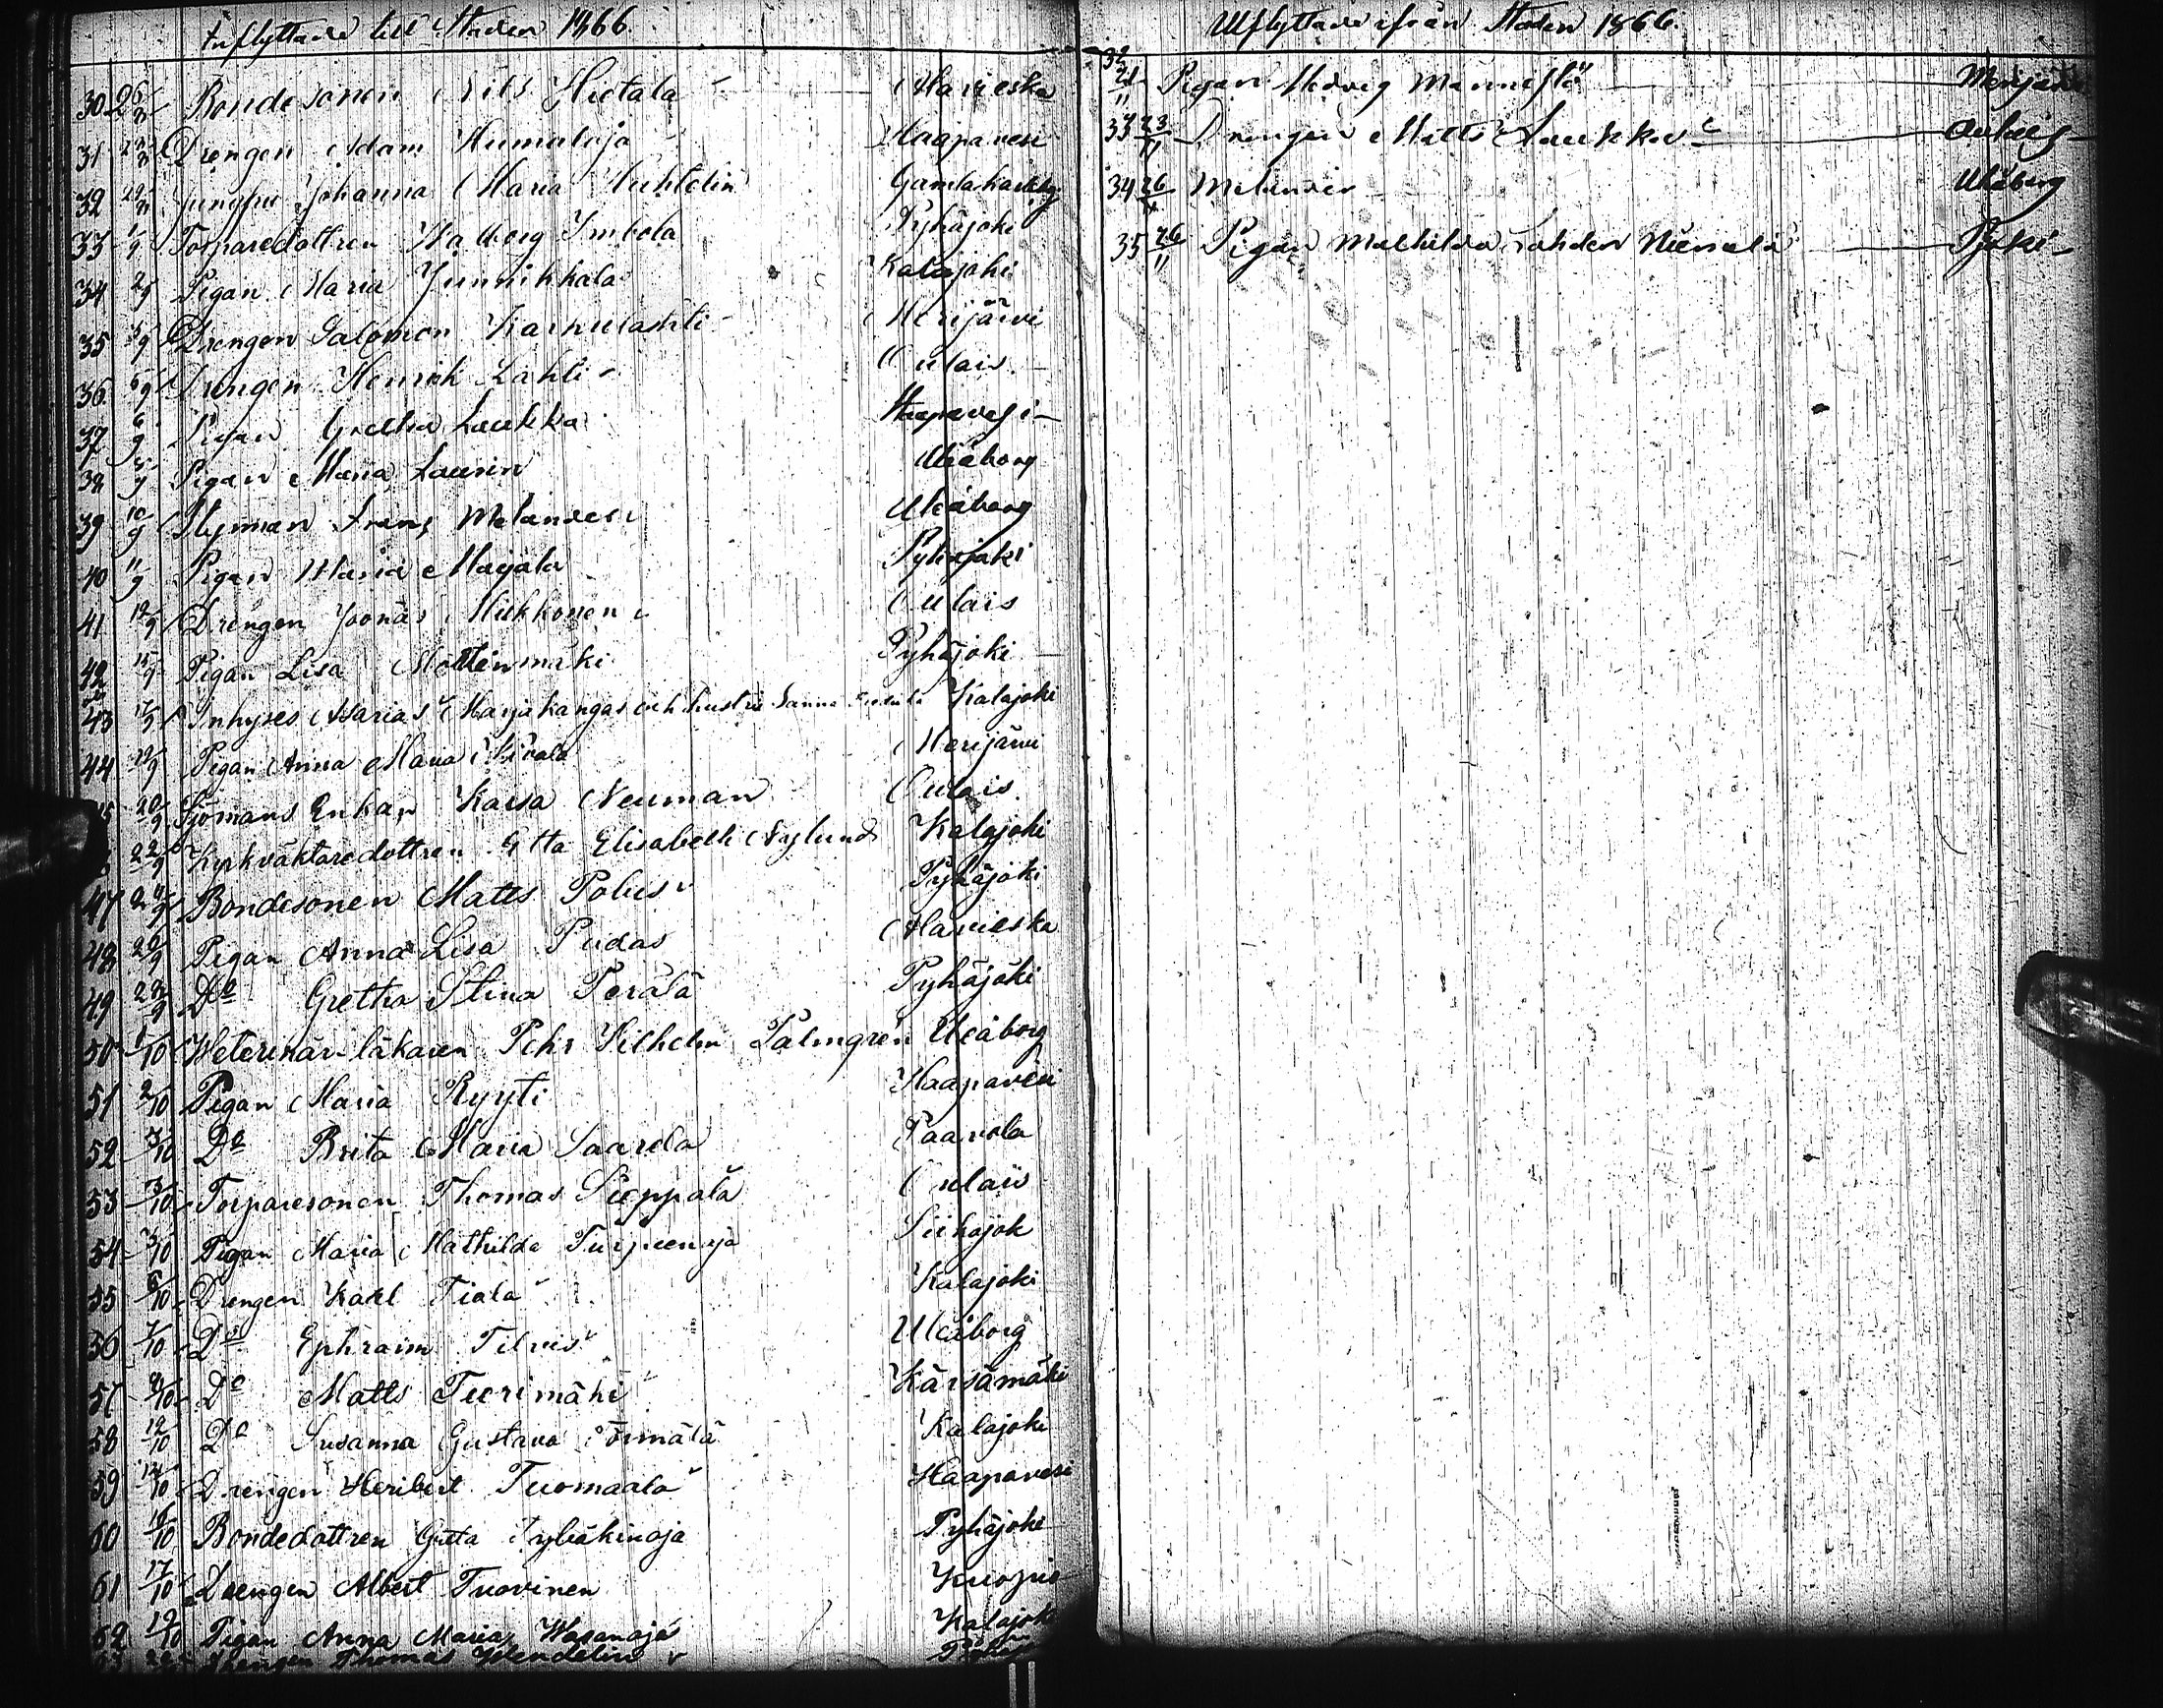 Inflyttade till Staden 1866.
30 26/8 Bondesonen Nils Hietala Alavieska
31 Drengen Adam Humaloja Haapavesi
32 29/8 Jungfru Johanna Maria Gamlakarleby
33 1/9 Torparedottren Walborg Pyhäjoki
34 2/9 Pigan Maria Junnikkala Kalajoki
35 5/9 Drengen Salomon Karhulahti Merijärvi
36 6/9 Drengen Henrik Lahti Oulais
37 6/9 Pigan Gretha Laukka Haapavesi
38 Pigan Maria Laurin Uleåborg
39 10/9 Styrman Frans Melander Uleåborg
40 11/9 Pigan Maria Marjala Pyhäjoki
41 12/9 Drengen Joonas Miekkonen Oulais
42 15/9 Pigan Lisa Pyhäjoki
43 17/9 Inhyses Marjakangas och hustru Sanna Kalajoki
44 19/9 Pigan Anna Maria Merijärvi
20/9 Sjömans Enkan Kaisa Neuman Oulais
22/9 Kyrkväktaredottren Elisabeth Nylund Kalajoki
47 24/9 Bondesonen Matts Polus Pyhäjoki
48 26/9 Pigan Anna Lisa Pudas Alavieska
49 28/9 Do Gretha Stina Perälä Pyhäjoki
50 1/10 Veterinär-läkaren Pehr Vilhelm Palmgren Uleåborg
51 2/10 Pigan Maria Ryyti Haapavesi
52 3/10 Do Brita Maria Saarela Paavola
53 3/10 Torparesonen Thomas Sieppälä Oulais
54 3/10 Pigan Maria Mathilda Siikajok
55 6/10 Drengen Kalajoki
56 7/10 Do Ephraim Tilvis Uleåborg
57 8/10 Do Matts Tuorimäki Kärsämäki
58 12/10 Do Susanna Gustava Kalajoki
59 14/10 Drengen Heribert Tuomaala Haapavesi
60 16/10 Bondedottren Greta Pyhäjoki
61 17/10 Drengen Albert Tuovinen Kuopio
62 19/10 Pigan Anna Maria Kalajoki
Drengen Thomas Wendelin
Utflyttade ifrån Staden 1866.
32 21/11 Pigan Hedvig Merijärvi
33 23/11 Drengen Matts Laukka Oulais
34 26/11 Melander Uleåborg
35 26/11 Pigan Mathilda Lahden Niemelä Pjoki